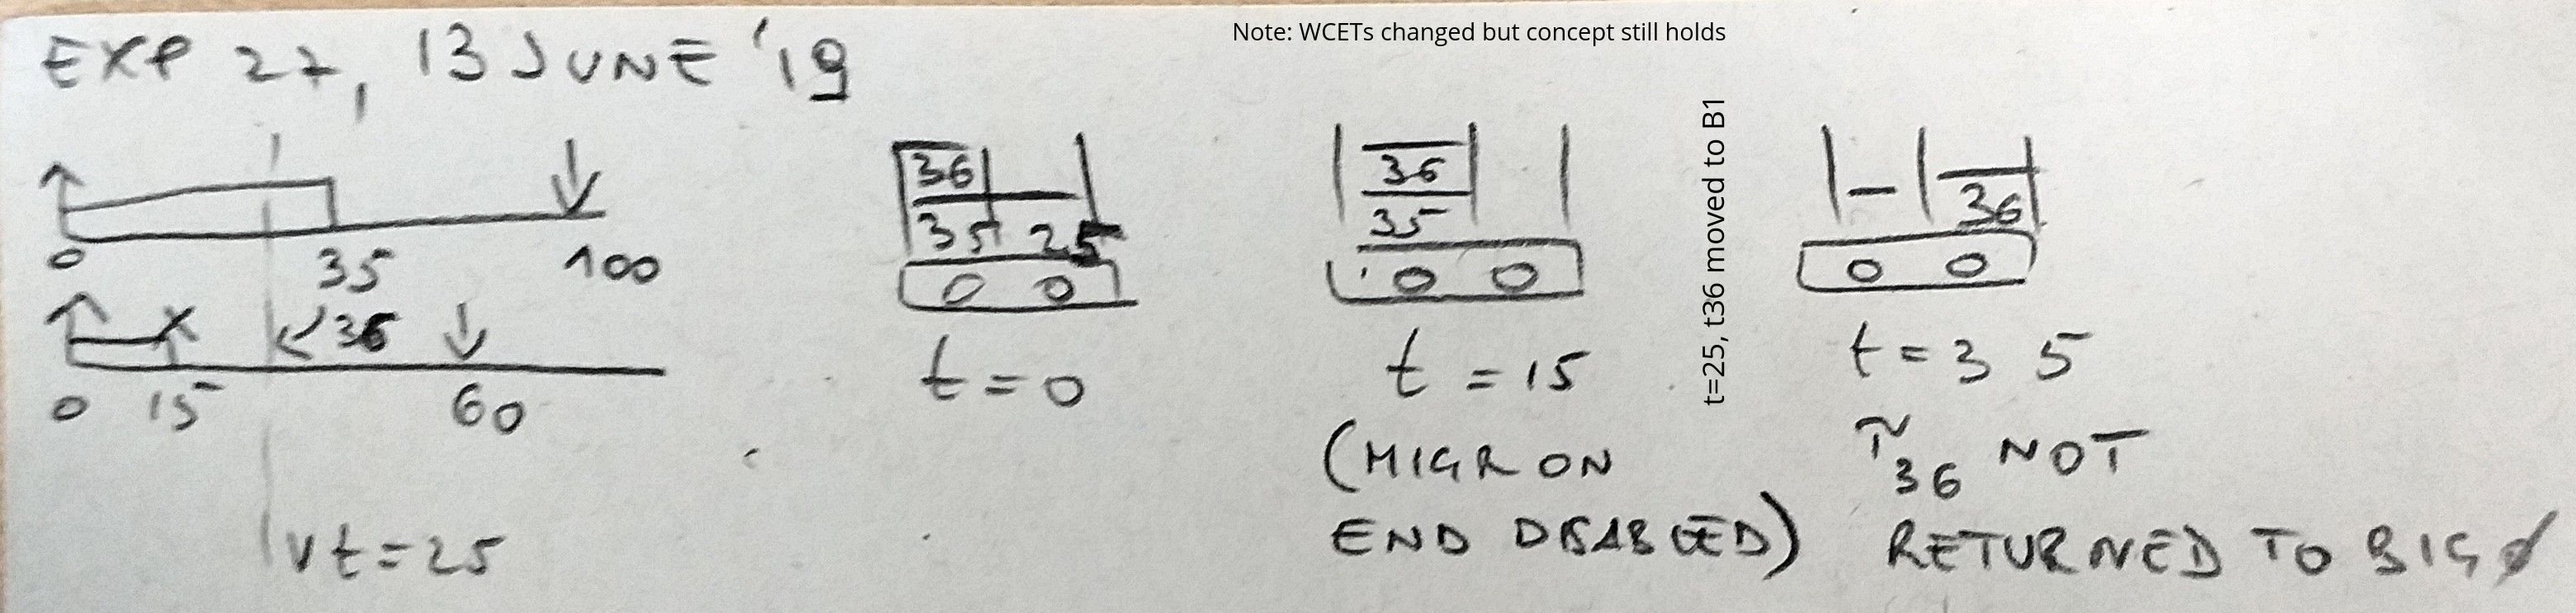 EXP 27, 13 JUNE '19
Note: WCETs changed but concept still holds
0 35 100
36
0 15 60
vt=25
36
35 25
0 0
t=0
36
35
0 0
t=15
(MIGR ON
END DISABLED)
t=25, t36 moved to B1
36
0 0
t=35
τ36 NOT
RETURNED TO BIG0